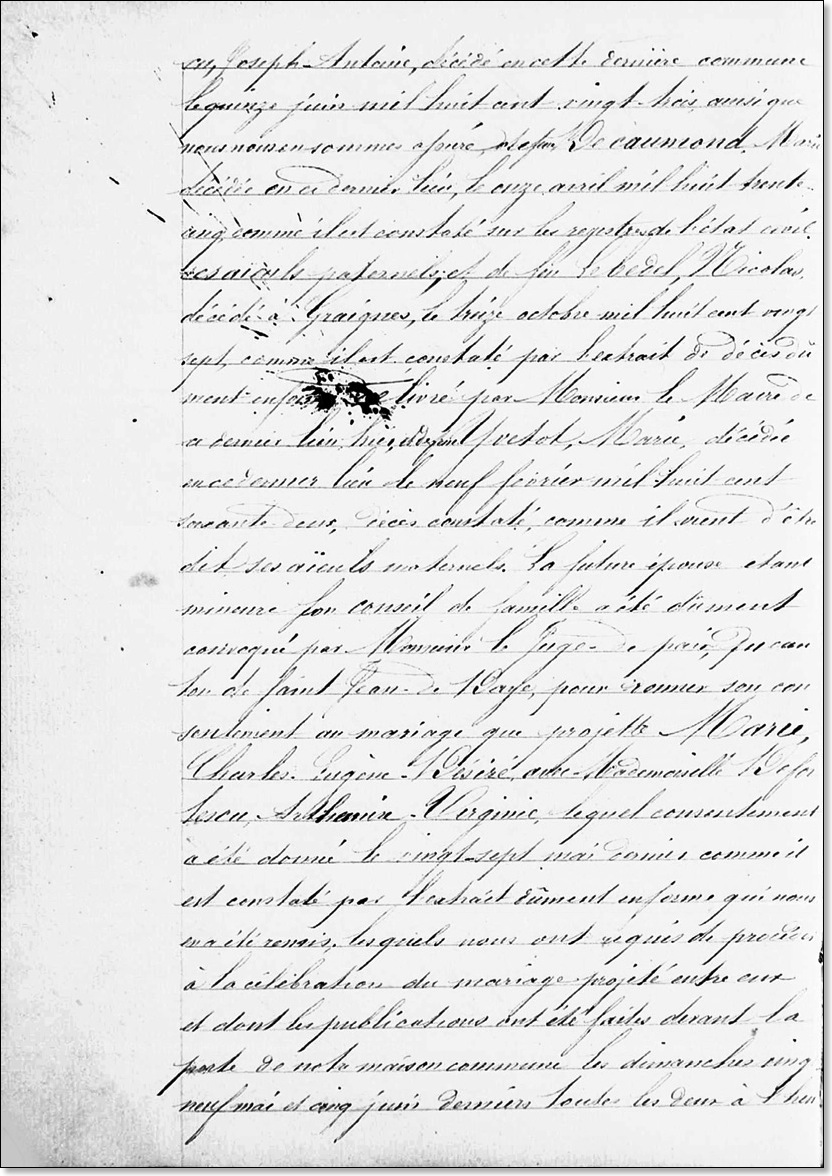 cu, Joseph-Antoine, décédé en cette dernière commune
le quinze juin mil huit cent vingt trois, ainsi que
nous nous en sommes assuré, et de feu Decaumond, Marie
décédée en ce dernier lieu, le onze avril mil huit trente
cinq comme il est constaté sur les registres de l'état civil.
ses aïeuls paternels, et de feu Lebedel, Nicolas,
décédé à Graignes, le treize octobre mil huit cent vingt
sept, comme il est constaté par l'extrait de décès dû
ment en délivré par Monsieur le Maire de
ce dernier lieu, hier, et de feu Yvetot, Marie, décédée
en ce dernier lieu le neuf février mil huit cent
soixante deux, décès constaté, comme il vient d'être
dit ses aïeuls maternels. La future épouse etant
mineure son conseil de famille a été dûment
convoqué par Monsieur le Juge de paix, du can
ton de Saint Jean-de Daye, pour donner son con
sentement au mariage que projette Marie,
Charles-Eugène-Désiré, avec Mademoiselle Defor
tescu, Arthemise-Virginie, lequel consentement
a été donné le vingt-sept mai dernier comme il
est constaté par l'extrait dûment en forme qui nous
en a été remis, lesquels nous ont requis de procéder
à la célébration du mariage projeté entre eux
et dont les publications ont été faites devant la
porte de notre maison commune les dimanches vingt
neuf mai et cinq juin derniers toutes les deux à l'heu